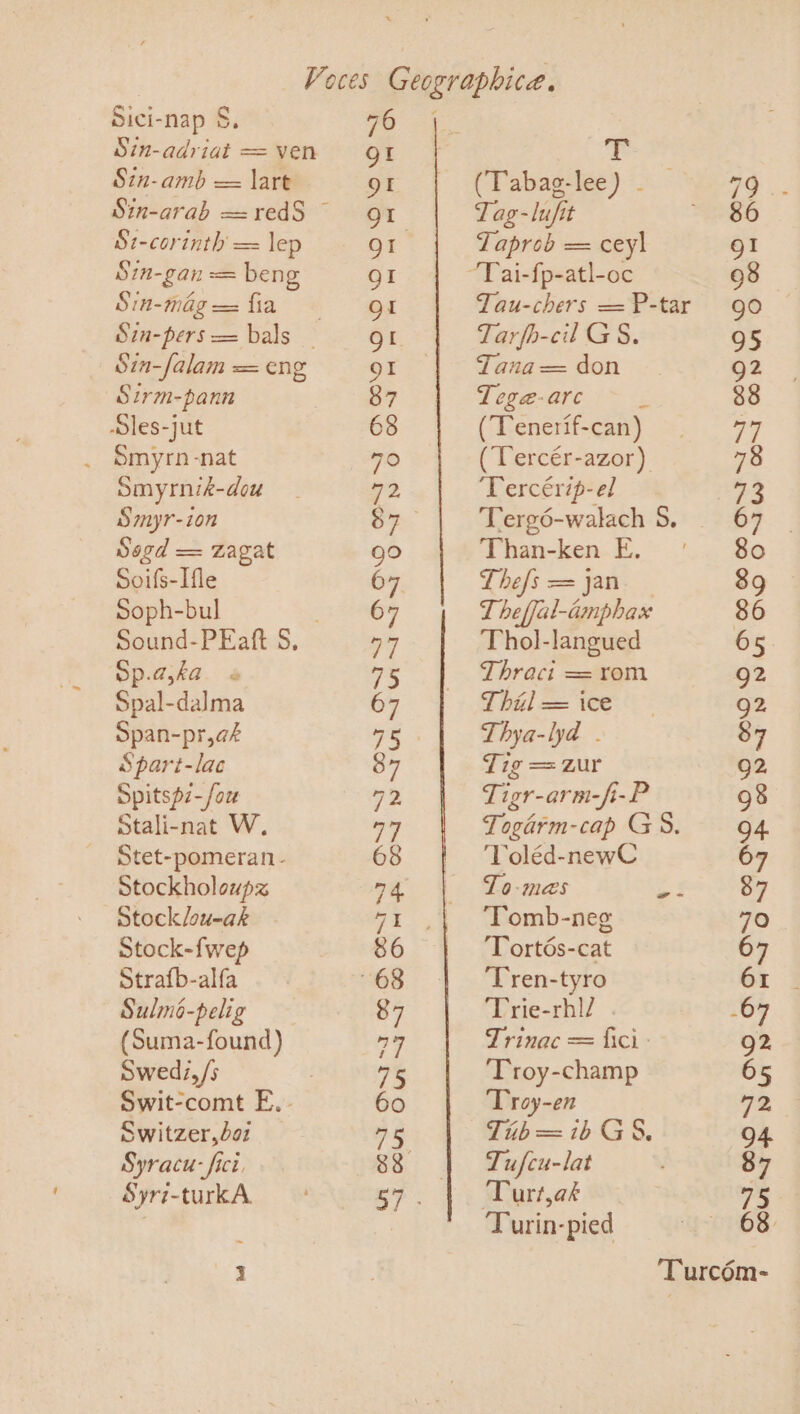 Voces Geographicæ.
Sici-nap S. 76
Sin-adriat = ven 91
Sin-amb = lart 91
Sin-arab = redS 91
Si-corinth = lep 91
Sin-gan = beng 91
Sin-mág = ſia 91
Sin-pers = bals 91
Sin-ſalam = eng 91
Sirm-pann 87
Sles-jut 68
Smyrn-nat 70
Smyrnik-dou 72
Smyr-ion 87
Sogd = zagat 90
Soiſs-Iſle 67
Soph-bul 67
Sound-PEaſt S. 77
Sp.a,ka 75
Spal-dalma 67
Span-pr,ak 75
Spart-lac 87
Spitspi-ſou 72
Stali-nat W. 77
Stet-pomeran- 68
Stockholoupz 74
Stocklou-ak 71
Stock-ſwep 86
Straſb-alſa 68
Sulmó-pelig 87
(Suma-found) 77
Swedi,ſs 75
Swit-comt E. 60
Switzer,boi 75
Syracu-ſici 88
Syri-turkA 57
T
(Tabag-lee) 79
Tag-luſit 86
Taprob = ceyl 91
Tai-ſp-atl-oc 98
Tau-chers = P-tar 90
Tarſh-cil G S. 95
Tana = don 92
Tegæ-arc 88
(Teneríf-can) 77
(Tercér-azor) 78
Tercérip-el 73
Tergó-walach S. 67
Than-ken E. 80
Theſs = jan 89
Theſſal-ámphax 86
Thol-langued 65
Thraci = rom 92
Thúl = ice 92
Thya-lyd 87
Tig = zur 92
Tigr-arm-ſi-P 98
Togárm-cap G S. 94
Toléd-newC 67
To-mæs 87
Tomb-neg 70
Tortós-cat 67
Tren-tyro 61
Trie-rhl/ 67
Trinac = ſici 92
Troy-champ 65
Troy-en 72
Túb = ib G S. 94
Tuſcu-lat 87
Turt,ak 75
Turin-pied 68
3
Turcóm-